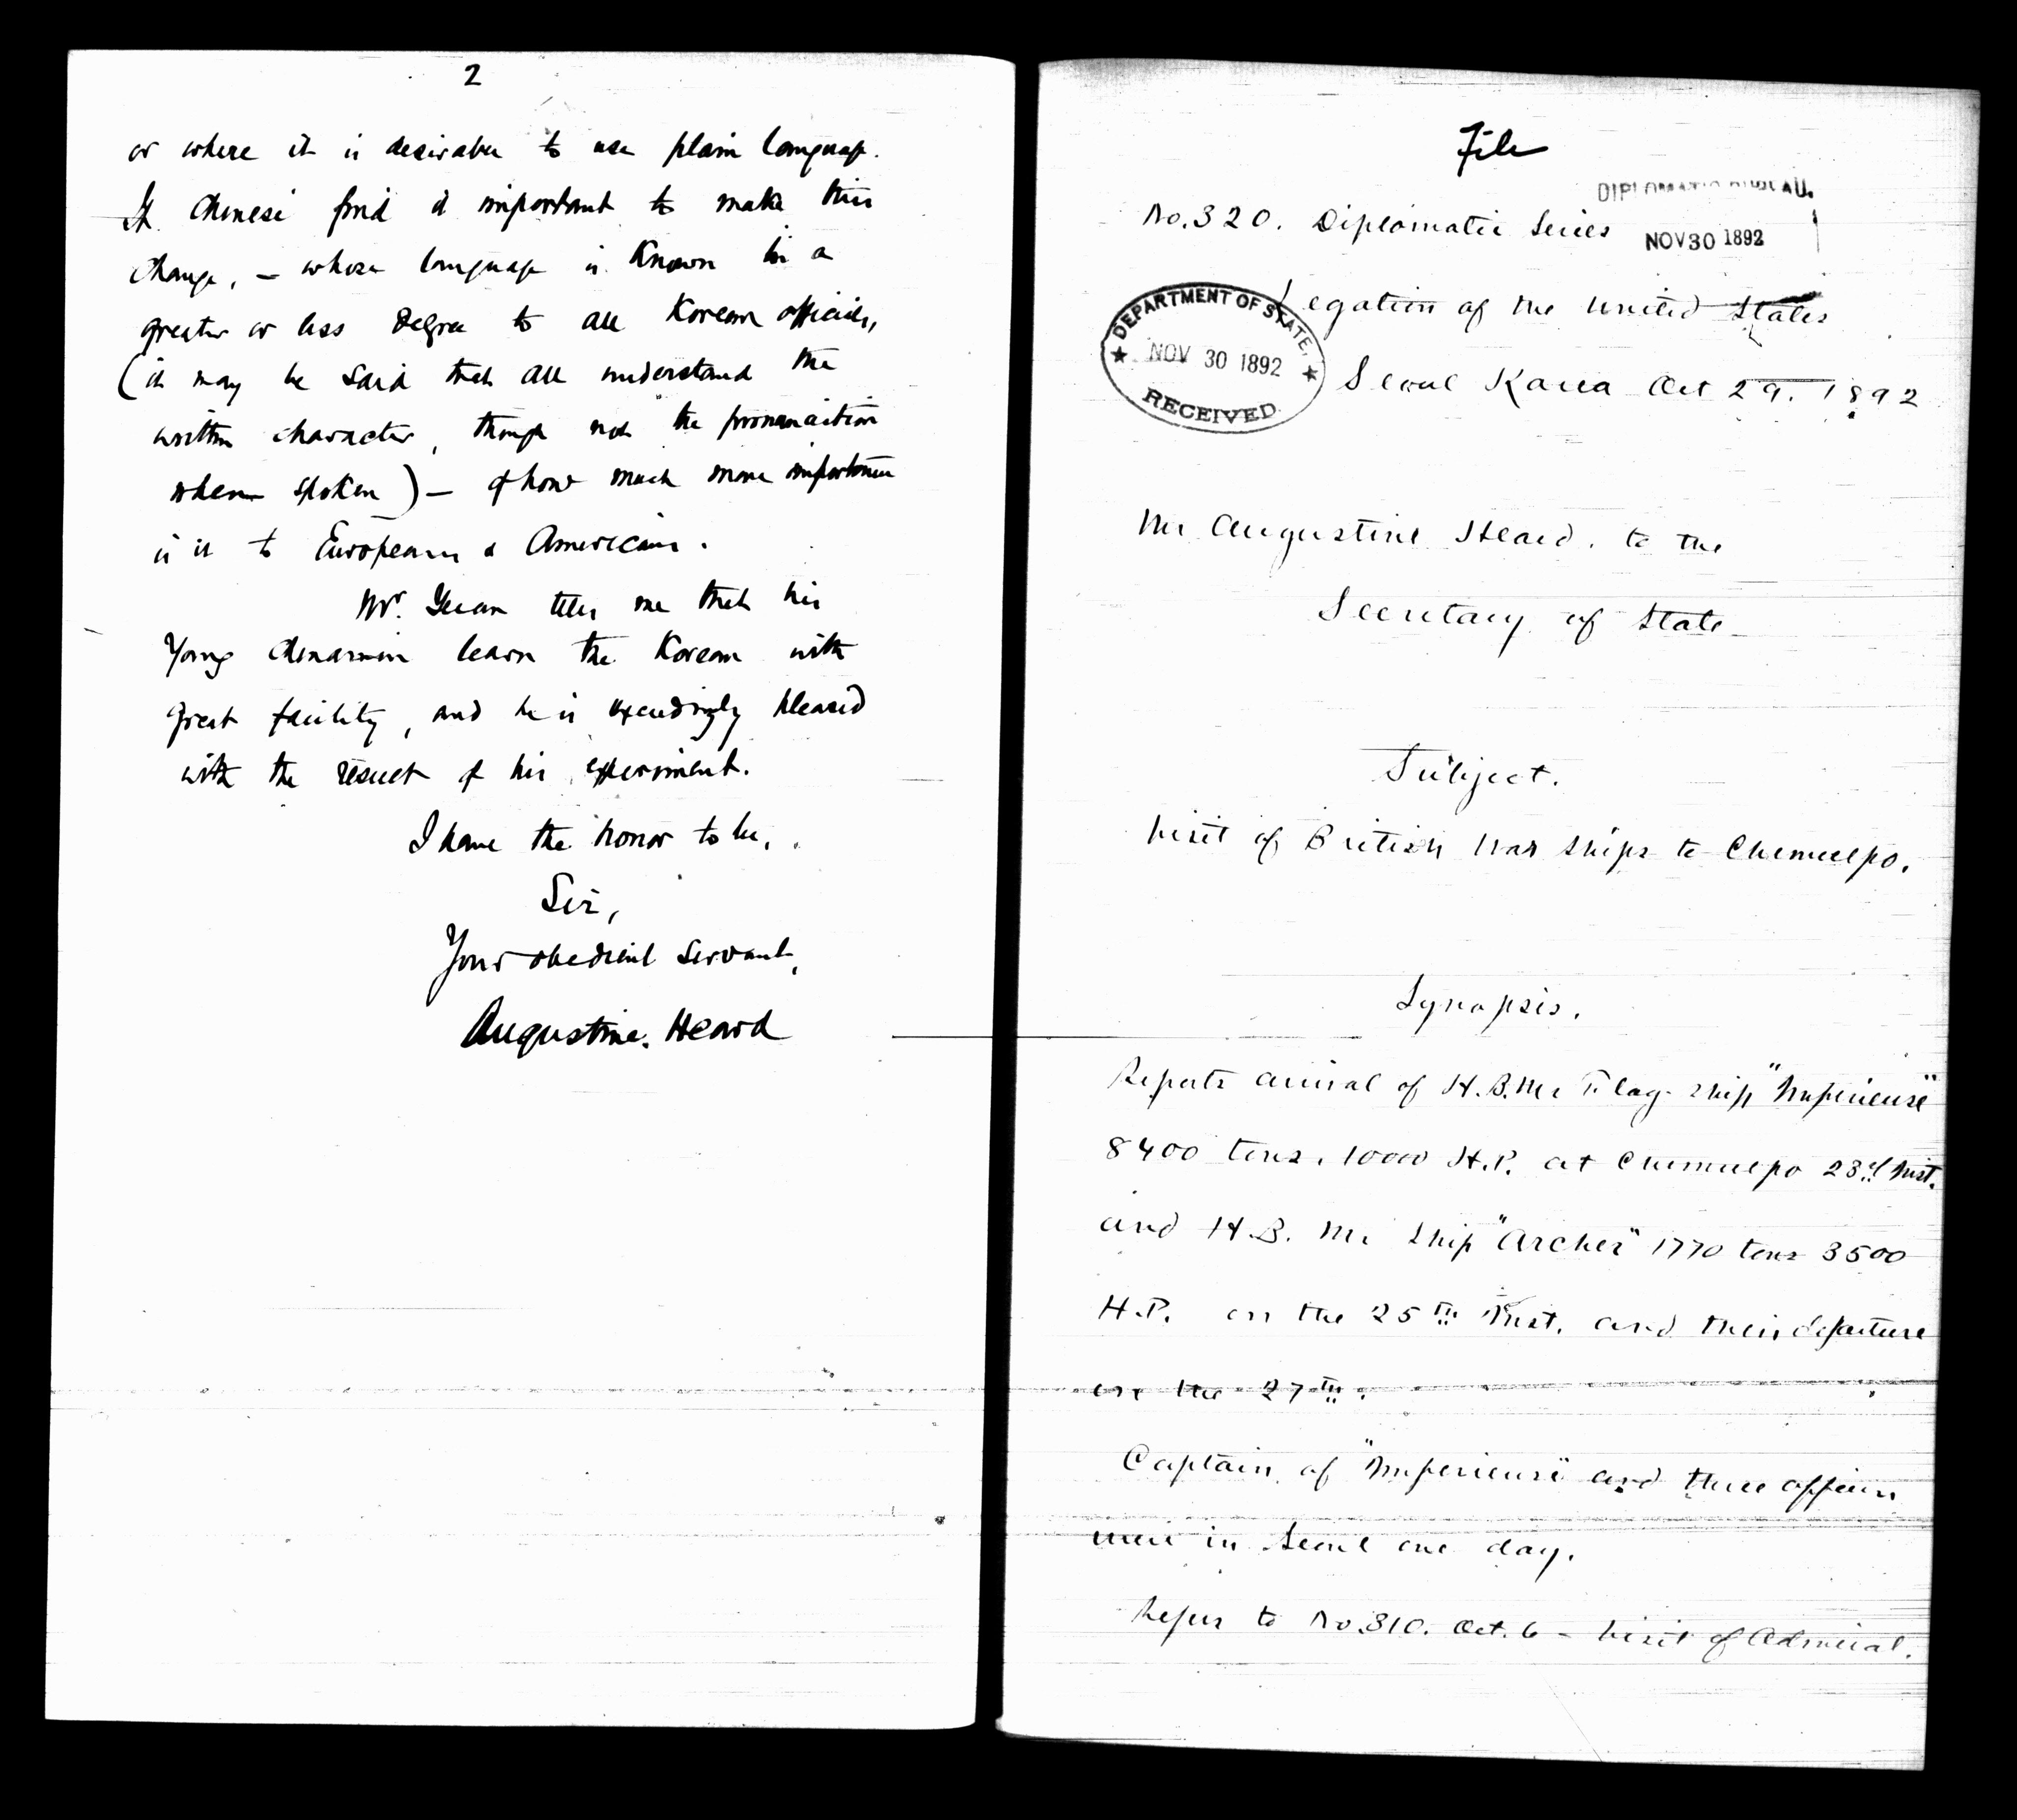 2
or where it is desirable to use plain language.
If Chinese find it important to make this
change, – whose language is known in a
greater or less degree to all Korean officials,
(it may be said that all understand the
written character, though not the pronunciation
when spoken) – of how much more importance
is it to Europeans & Americans.
Mr. Yuan tells me that his
young Chinamen learn the Korean with
great facility, and he is exceedingly pleased
with the result of his experiment.
I have the honor to be,
Sir,
Your obedient servant,
Augustine Heard
File
DIPLOMATIC BUREAU.
NOV 30 1892
No. 320. Diplomatic Series
Legation of the United States
DEPARTMENT OF STATE,
NOV 30 1892
RECEIVED
Seoul Korea Oct 29. 1892
Mr Augustine Heard. to the
Secretary of State
Subject.
Visit of British War Ships to Chemulpo.
Synopsis.
Reports arrival of H.B.Ms Flag-ship "Imperieuse"
8400 tons. 10000 H.P. at Chemulpo 23rd Inst.
and H.B. Ms Ship "Archer" 1770 tons 3500
H.P. on the 25th Inst. and their departure
on the 27th.
Captain of "Imperieuse" and three officers
were in Seoul one day.
Refers to No. 310. Oct. 6 – Visit of Admiral.